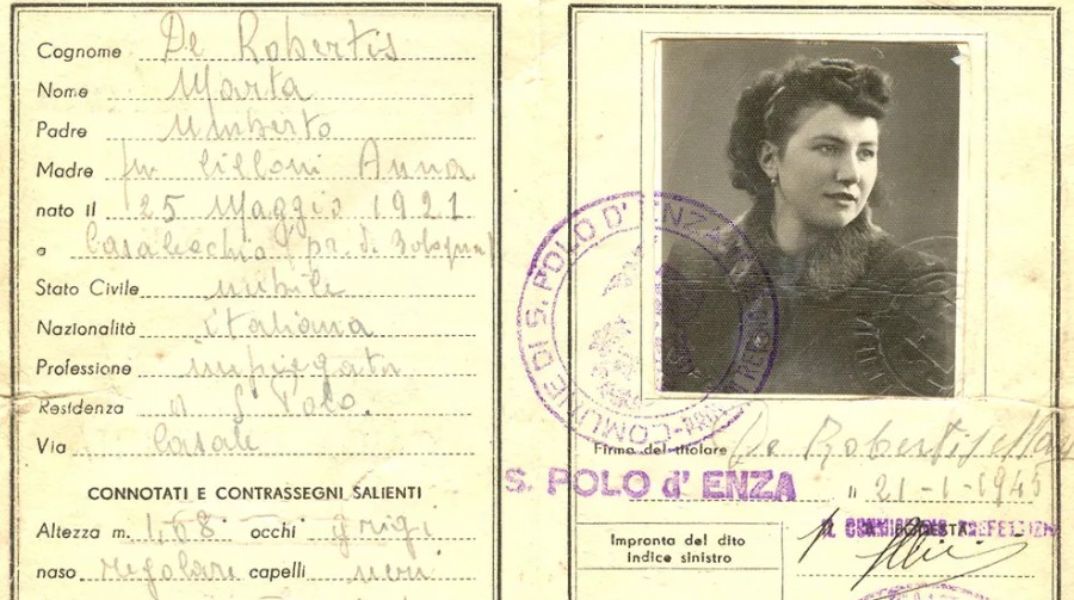 Cognome De Robertis
Nome Marta
Padre Umberto
Madre fu Cilloni Anna
nato Il 25 Maggio 1921
a Casalecchio pr. di Bologna
Stato Civile nubile
Nazionalità italiana
Professione impiegata
Residenza a S. Polo.
Via Casale
CONNOTATI E CONTRASSEGNI SALIENTI
Altezza m. 1,68 occhi grigi
naso regolare capelli neri
COMUNE DI S. POLO D' ENZA
Firma del titolare De Robertis
S. POLO d' ENZA " 21-1-1945
Impronta del dito
indice sinistro
IL COMMISSARIO PREFETTIZIO